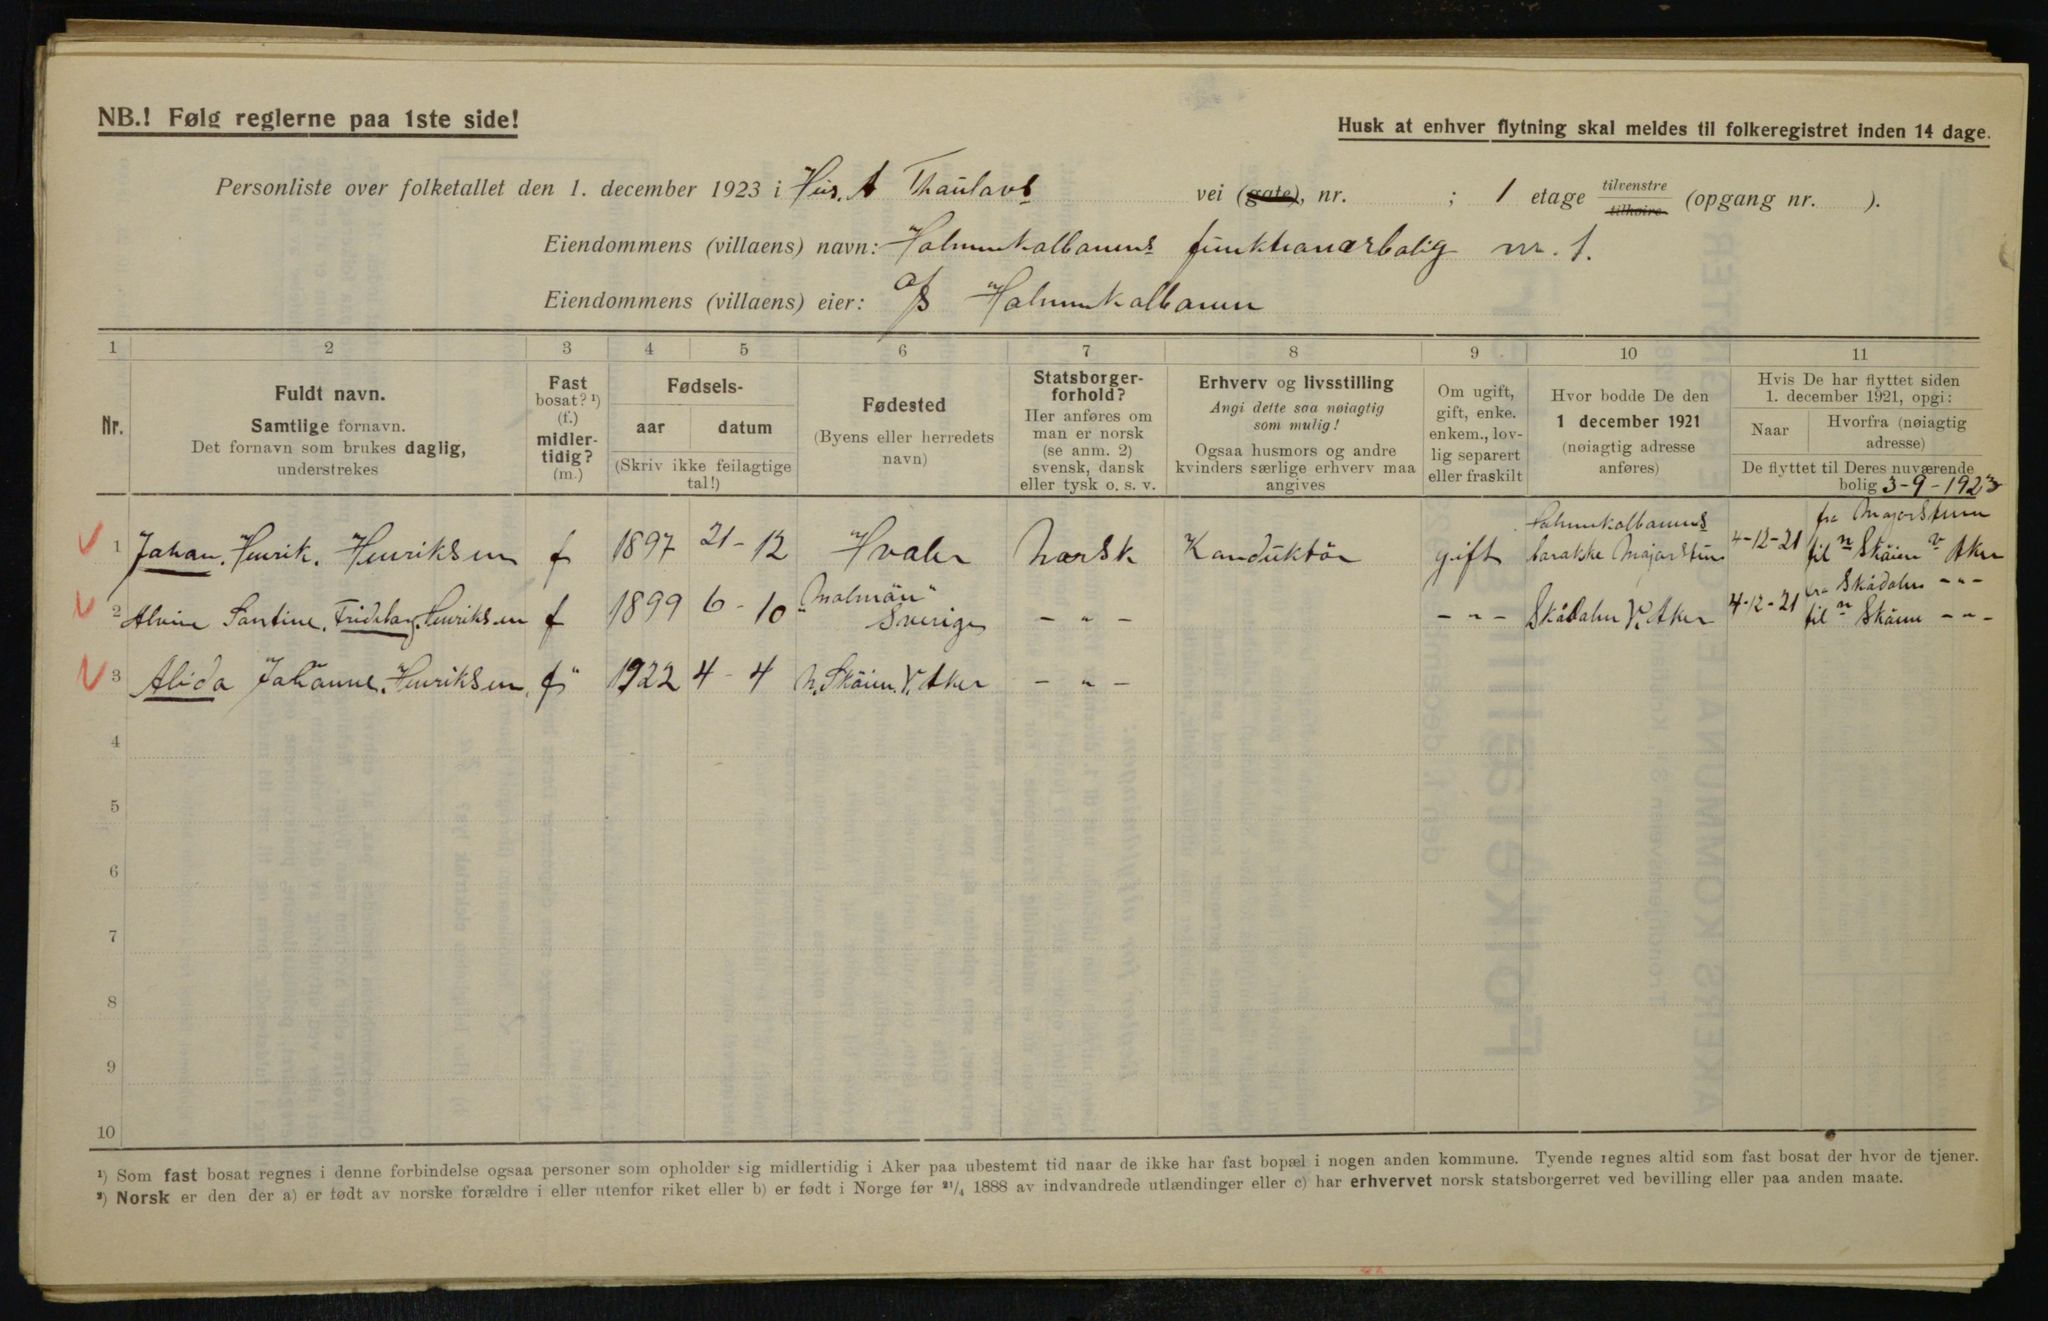 NB.! Følg reglerne paa 1ste side!
Husk at enhver flytning skal meldes til folkeregistret inden 14 dage.
Personliste over folketallet den 1. december 1923 i Hus. A Thaulows vei (gate), nr. ; 1 etage tilvenstre tilhøire (opgang nr. ).
Eiendommens (villaens) navn: Holmenkolbanens funktionærbolig nr. 1.
Eiendommens (villaens) eier: A/S Holmenkolbanen
1 2 3 4 5 6 7 8 9 10 11
Nr.
Fuldt navn.
Samtlige fornavn.
Det fornavn som brukes daglig,
understrekes
Fast
bosat? ¹)
(f.)
midler-
tidig?
(m.)
Fødsels-
aar datum
(Skriv ikke feilagtige
tal!)
Fødested
(Byens eller herredets
navn)
Statsborger-
forhold?
Her anføres om
man er norsk
(se anm. 2)
svensk, dansk
eller tysk o. s. v.
Erhverv og livsstilling
Angi dette saa nøiagtig
som mulig!
Ogsaa husmors og andre
kvinders særlige erhverv maa
angives
Om ugift,
gift, enke.
enkem., lov-
lig separert
eller fraskilt
Hvor bodde De den
1 december 1921
(nøiagtig adresse
anføres)
Hvis De har flyttet siden
1. december 1921, opgi:
Naar
Hvorfra (nøiagtig
adresse)
De flyttet til Deres nuværende
bolig 3-9-1923
1 Johan. Henrik. Henriksen f 1897 21-12 Hvaler Norsk Konduktör gift Holmenkolbanens barakke Majorstuen 4-12-21 fra Majorstuen til n Skøien v Aker
2 Alvine Santine. Frideborg. Henriksen f 1899 6-10 "Malmön" Sverige - " - - " - Skådalen V. Aker 4-12-21 fra Skådalen - " - til n Skøien - " -
3 Alida Johanne. Henriksen, f" 1922 4-4 N. Skøien. V. Aker - " -
4
5
6
7
8
9
10
¹) Som fast bosat regnes i denne forbindelse ogsaa personer som opholder sig midlertidig i Aker paa ubestemt tid naar de ikke har fast bopæl i nogen anden kommune. Tyende regnes altid som fast bosat der hvor de tjener.
²) Norsk er den der a) er født av norske forældre i eller utenfor riket eller b) er født i Norge før ²¹/₄ 1888 av indvandrede utlændinger eller c) har erhvervet norsk statsborgerret ved bevilling eller paa anden maate.